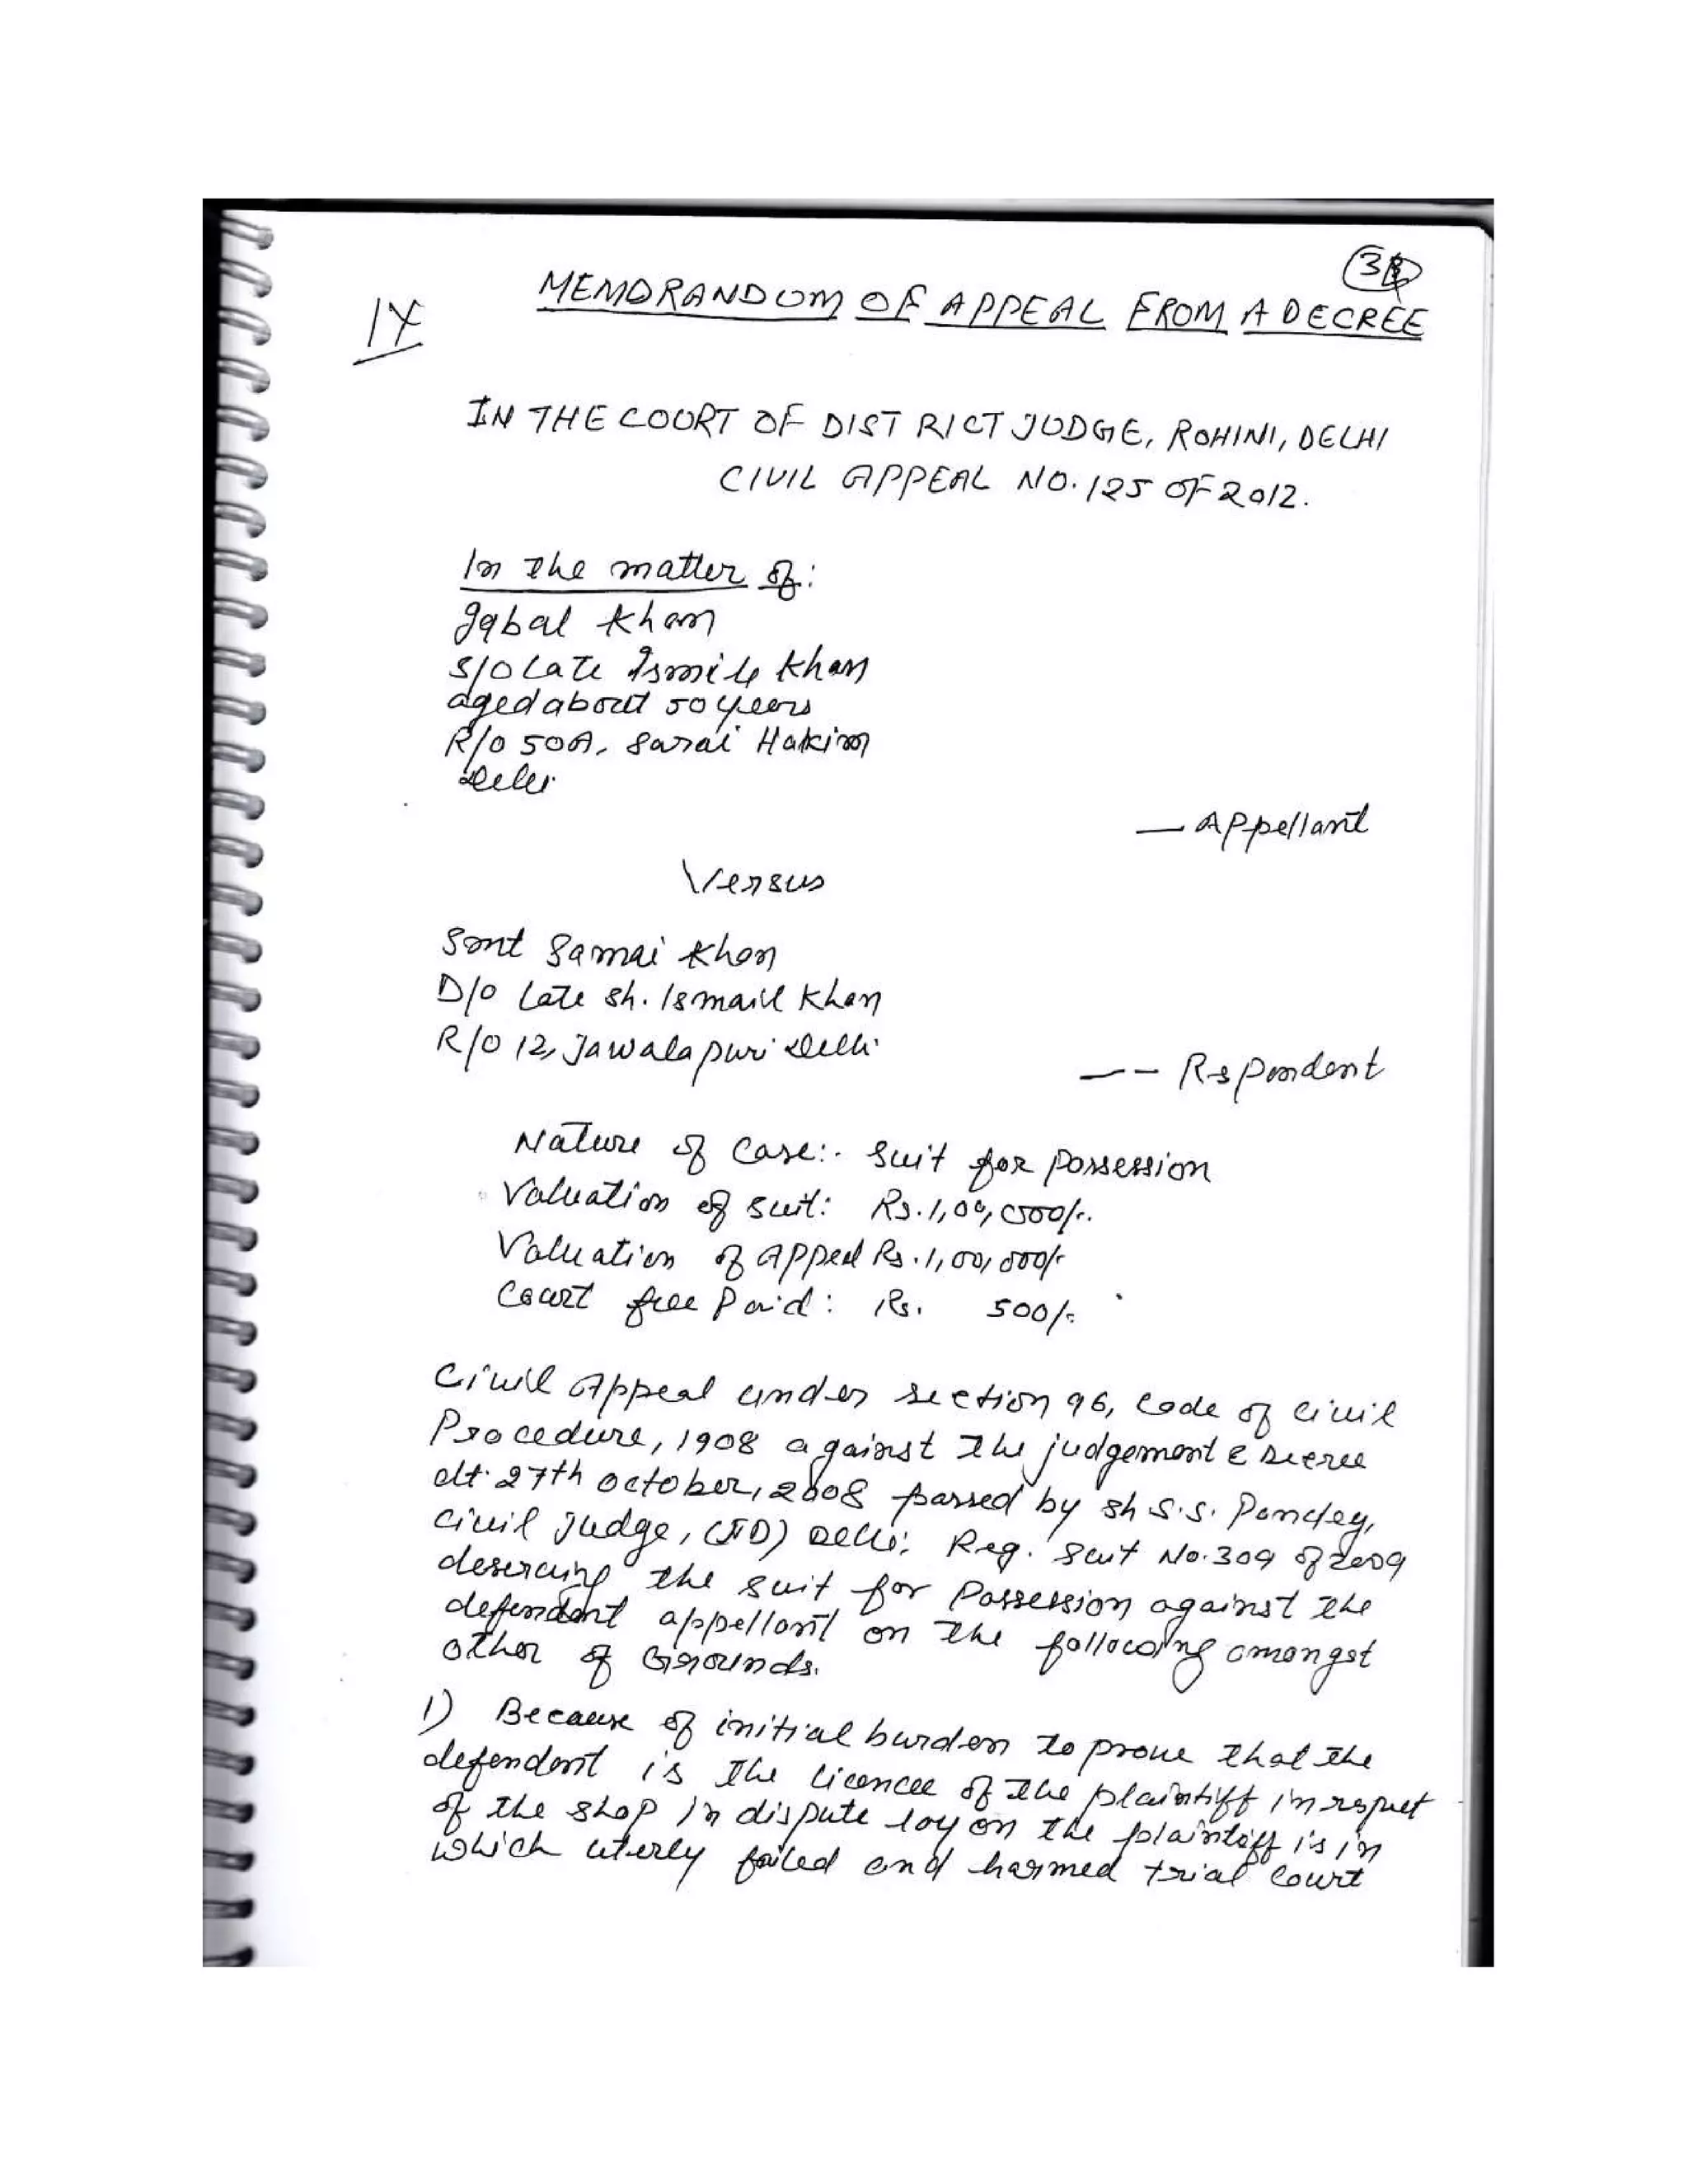 MEMORANDUM OF APPEAL FROM A DECREE
IN THE COURT OF DISTRICT JUDGE, ROHINI, DELHI
CIVIL APPEAL NO. 125 OF 2012.
In the matter of:
Iqbal Khan
S/o Late Ismile Khan
aged about 50 years
R/o 50A, Sarai Hakim
Delhi
— Appellant
Versus
Smt Samai Khan
D/o Late Sh. Ismaill Khan
R/o 12, Jawalapuri Delhi
—- Rspondent
Nature of Case:- Suit for Possession
Valuation of Suit: Rs. 1,00,000/-.
Valuation of Appeal Rs. 1,00,000/-
Court fee Paid: Rs. 500/-
Civil Appeal under section 96, Code of Civil
Procedure, 1908 against the judgement & Decree
dt. 27th October, 2008 passed by Sh S.S. Pandey,
Civil Judge, (JD) Delhi; Reg. Suit No. 309 of 2009
the suit for Possession against the
defendant appellant on the following amongst
other of Grounds.
1) Because of initial burden to prove that the
defendant is the licencee of the plaintiff in respect
of the shop in dispute lay on the plaintiff is in
which uterly failed and harmed trial court